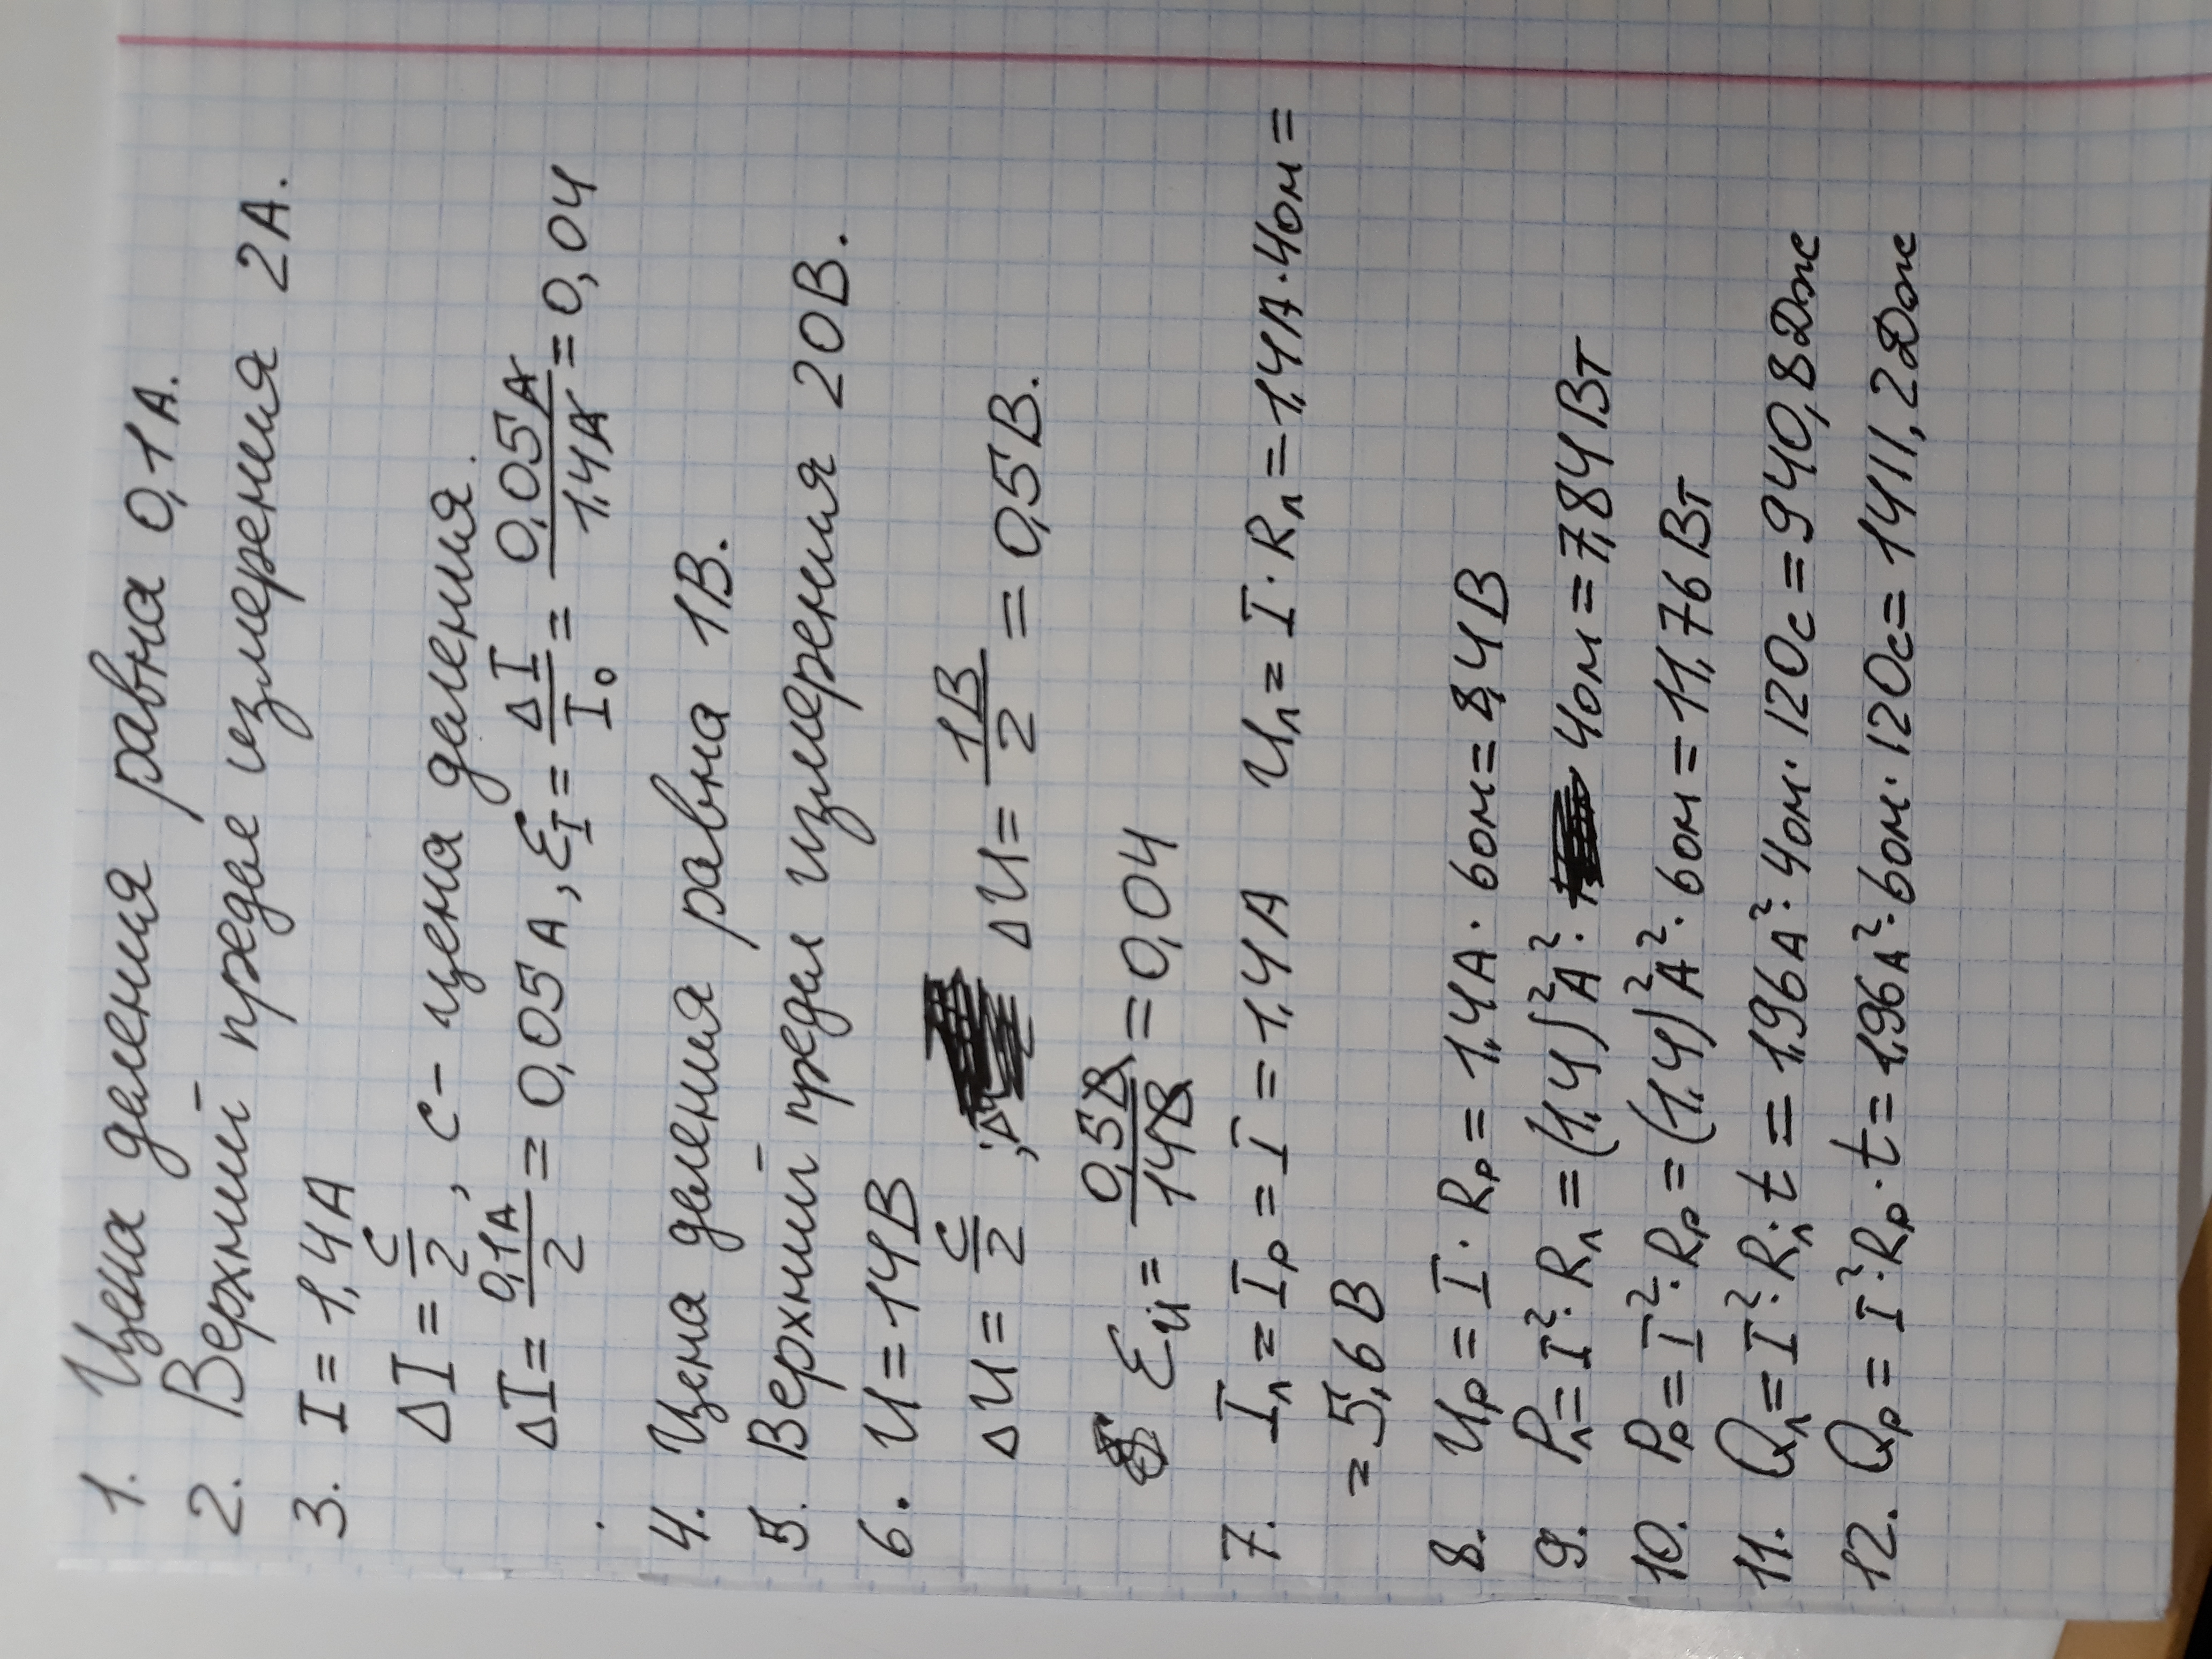 1. Цена деления равна 0,1А.
2. Верхний предел измерения 2А.
3. I = 1,4А
ΔI = c/2, c - цена деления.
ΔI = 0,1А/2 = 0,05А, ε_I = ΔI/I₀ = 0,05А/1,4А = 0,04
4. Цена деления равна 1В.
5. Верхний предел измерения 20В.
6. U = 14В
ΔU = c/2; ΔU = 1В/2 = 0,5В.
ε_U = 0,5В/14В = 0,04
7. Iл = Iр = I = 1,4А Uл = I · Rл = 1,4А · 4Ом =
= 5,6В
8. Uр = I · Rр = 1,4А · 6Ом = 8,4В
9. Pл = I² · Rл = (1,4)²А² · 4Ом = 7,84Вт
10. Pр = I² · Rр = (1,4)²А² · 6Ом = 11,76Вт
11. Qл = I² · Rл · t = 1,96А² · 4Ом · 120с = 940,8Дж
12. Qр = I² · Rр · t = 1,96А² · 6Ом · 120с = 1411,2Дж